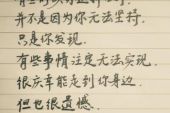 并不是因为你无法坚持.
只是你发现.
有些事情注定无法实现.
很庆幸能走到你身边.
但也很遗憾.